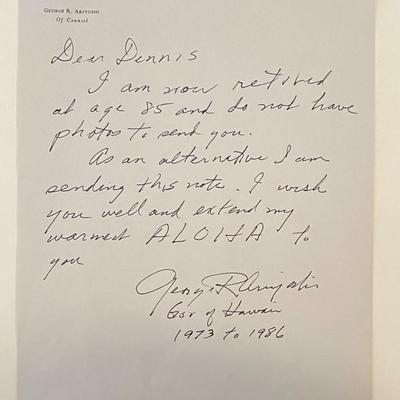 GEORGE R. ARIYOSHI
Of Counsel
Dear Dennis
I am now retired
at age 85 and do not have
photos to send you.
As an alternative I am
sending this note. I wish
you well and extend my
warmest ALOHA to
you
George R Ariyoshi
Gov of Hawaii
1973 to 1986